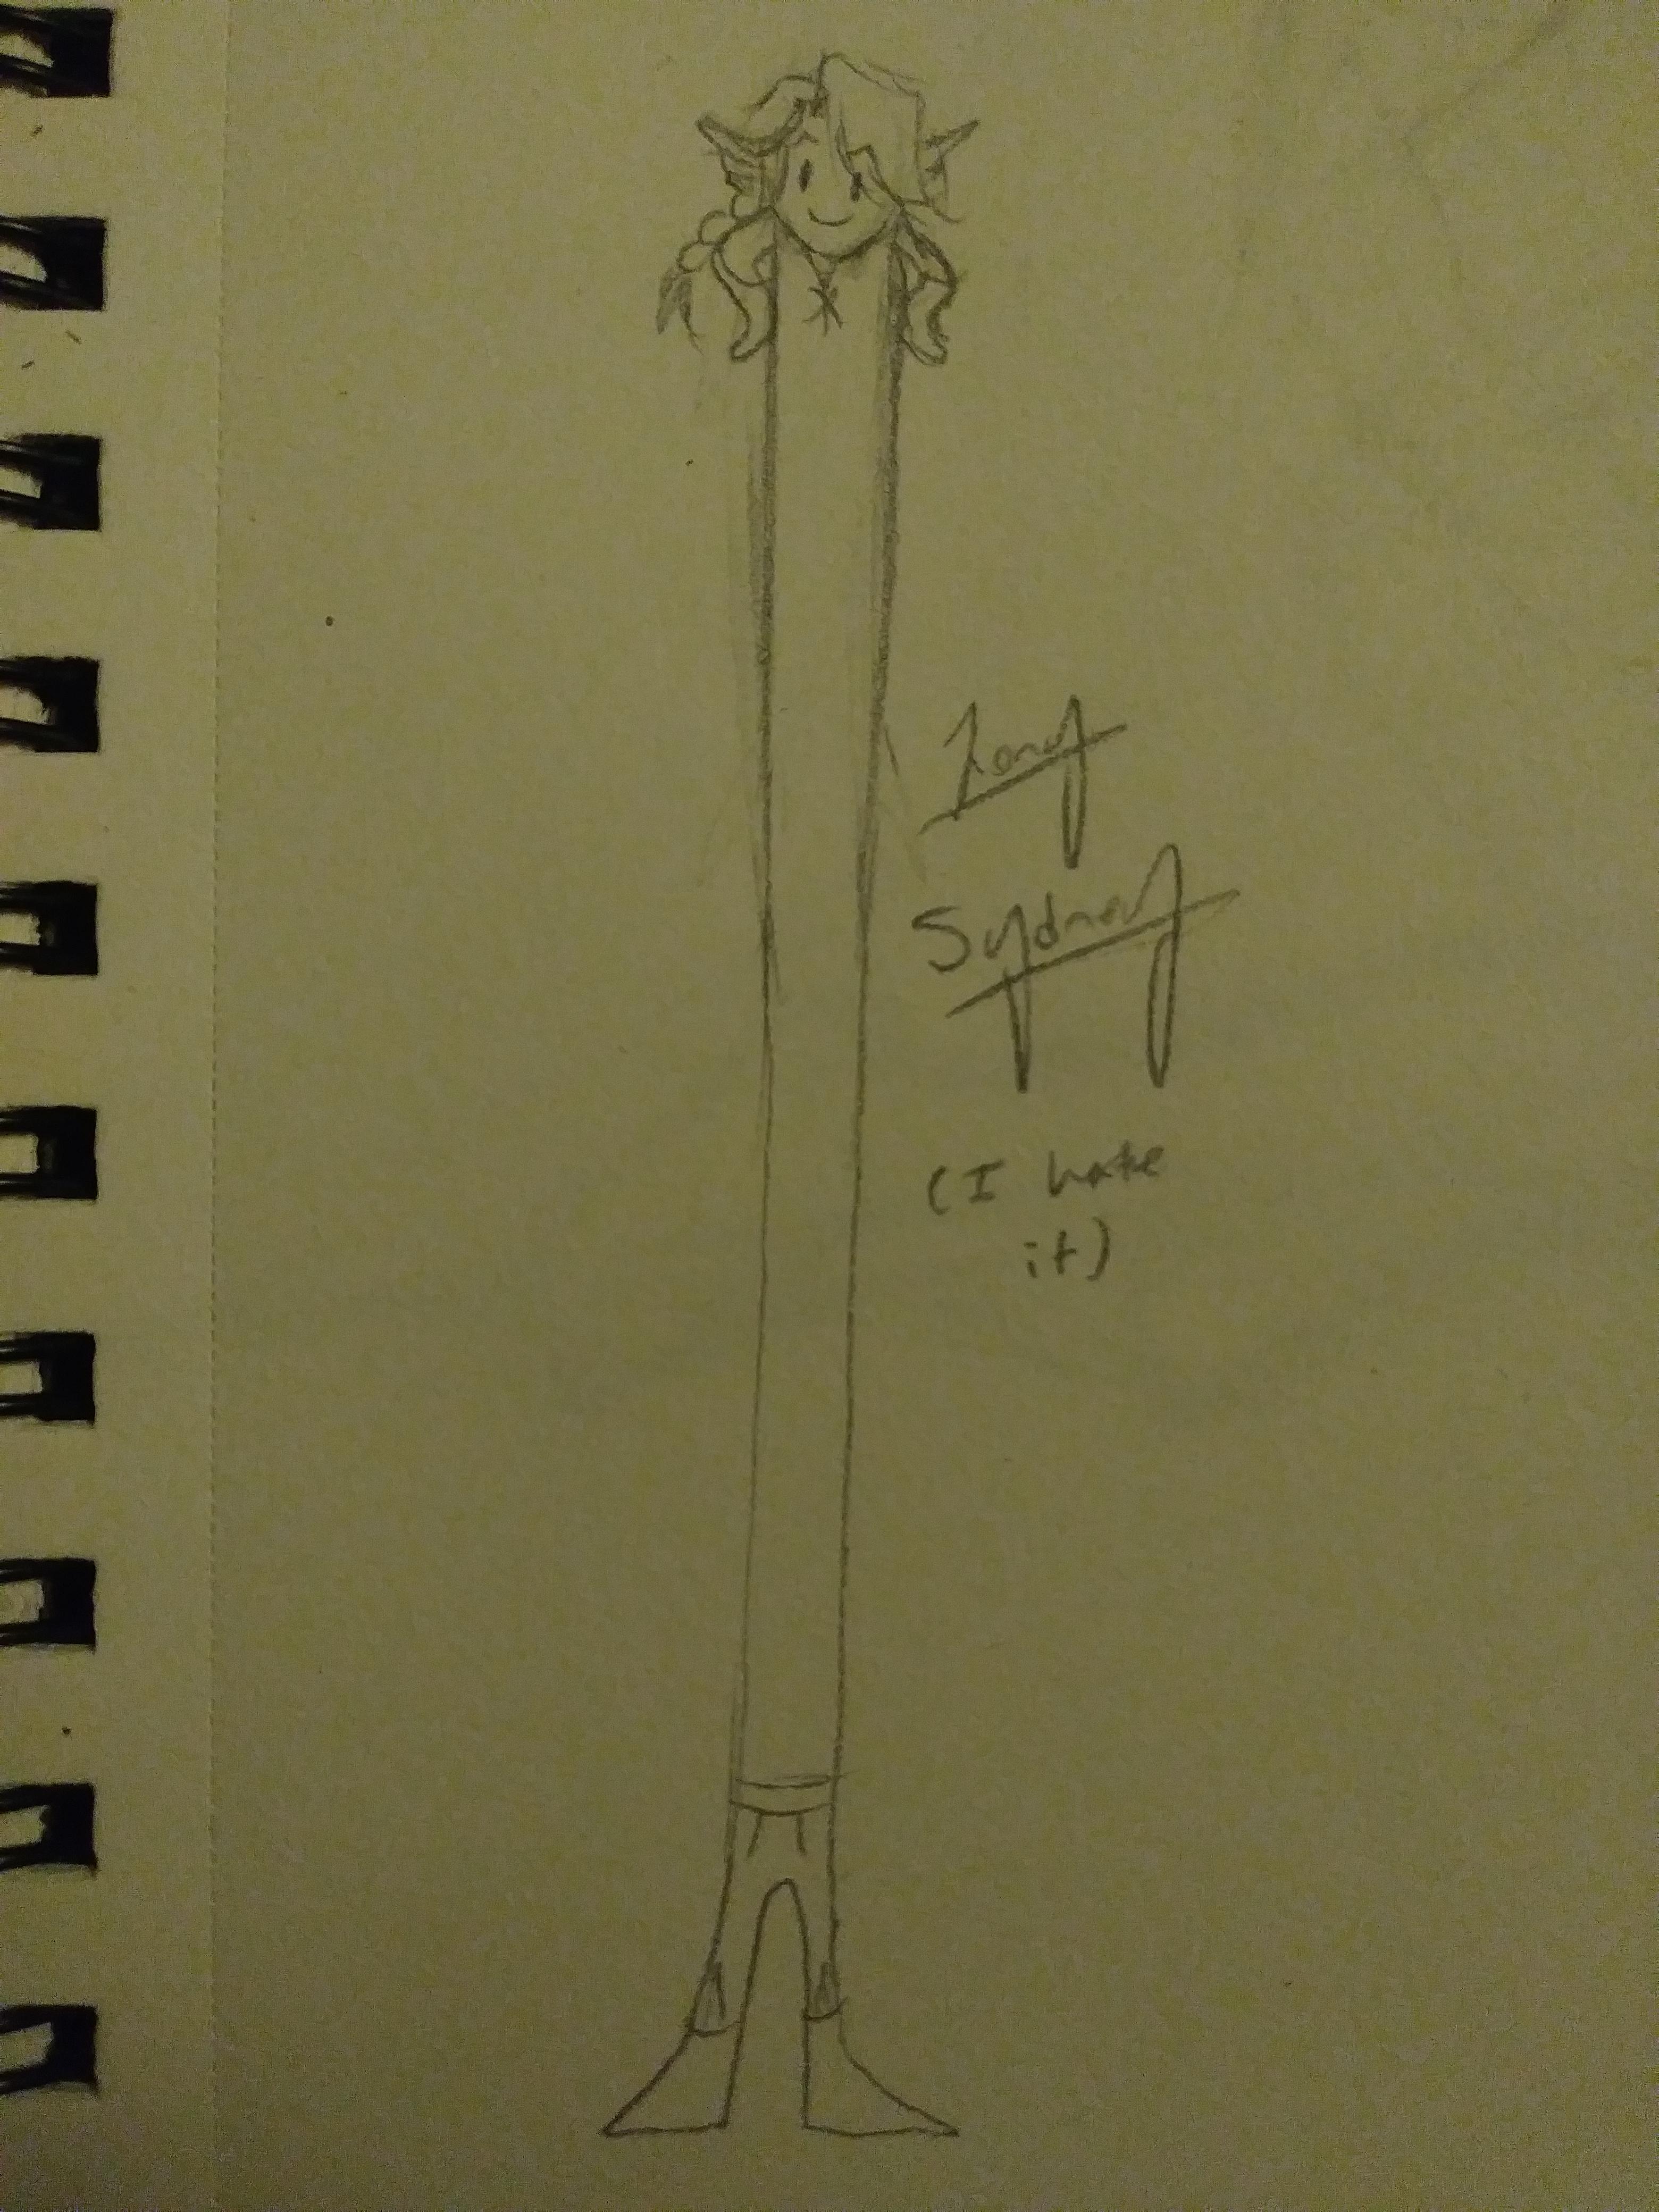 Long
Sydney
(I hate
it)